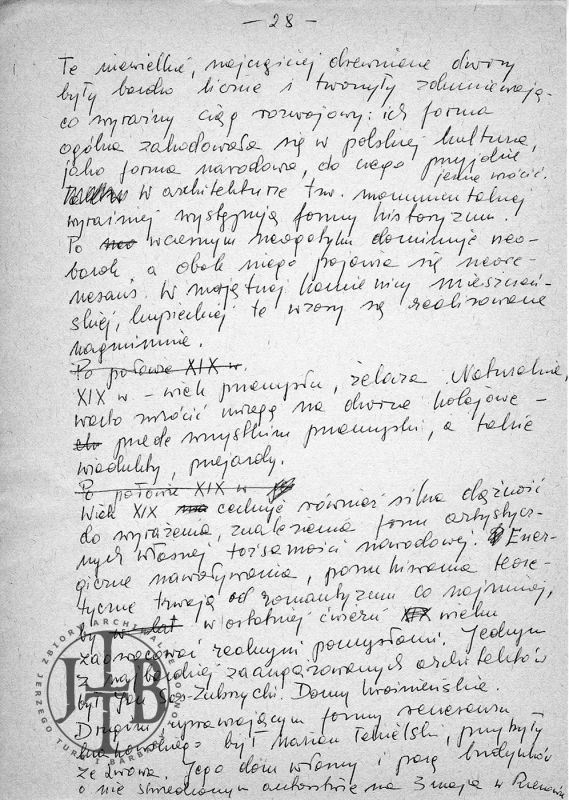 - 28 -
Te niewielkie, najczęściej drewniane dwory
były bardzo liczne i tworzyły zdumiewają-
co wyraźny ciąg rozwojowy: ich forma
ogólna zahodowała się w polskiej kulturze,
jako forma narodowa, do czego przyjdzie
jeszcze wrócić.
w architekturze tzw. monumentalnej
wyraźniej występują formy historyzmu.
Po neo wczesnym neogotyku dominuje neo-
barok a obok niego pojawia się neore-
nesans. W majętnej kamienicy mieszczań-
skiej, kupieckiej te wzory są realizowane
nagminnie.
Po połowie XIX w.
XIX w - wiek przemysłu, żelaza. Naturalnie,
warto zwrócić uwagę na dworce kolejowe -
przede wszystkim przemyski, a także
wiadukty, przejazdy.
Po połowie XIX w
Wiek XIX cechuje również silna dążność
do wyrażenia, znalezienia form artystycz-
nych własnej tożsamości narodowej. Ener-
giczne nawoływania, poszukiwania teore-
tyczne trwają od romantyzmu co najmniej,
by w lat w ostatniej ćwierci XIX wieku
zaowocować realnymi pomysłami. Jednym
z najbardziej zaangażowanych architektów
był Jan Sas-Zubrzycki. Domy krośnieńskie.
Drugim uprawiającym formy renesansu
narodowego był Marian, przybyły
ze Lwowa. Jego dom własny i parę budynków
o nie stwierdzonym autorstwie na 3 maja w Rzeszowie
JERZEGO TUR I BARBARY TONDOS ZBIORY ARCHIWALNE
JTBT